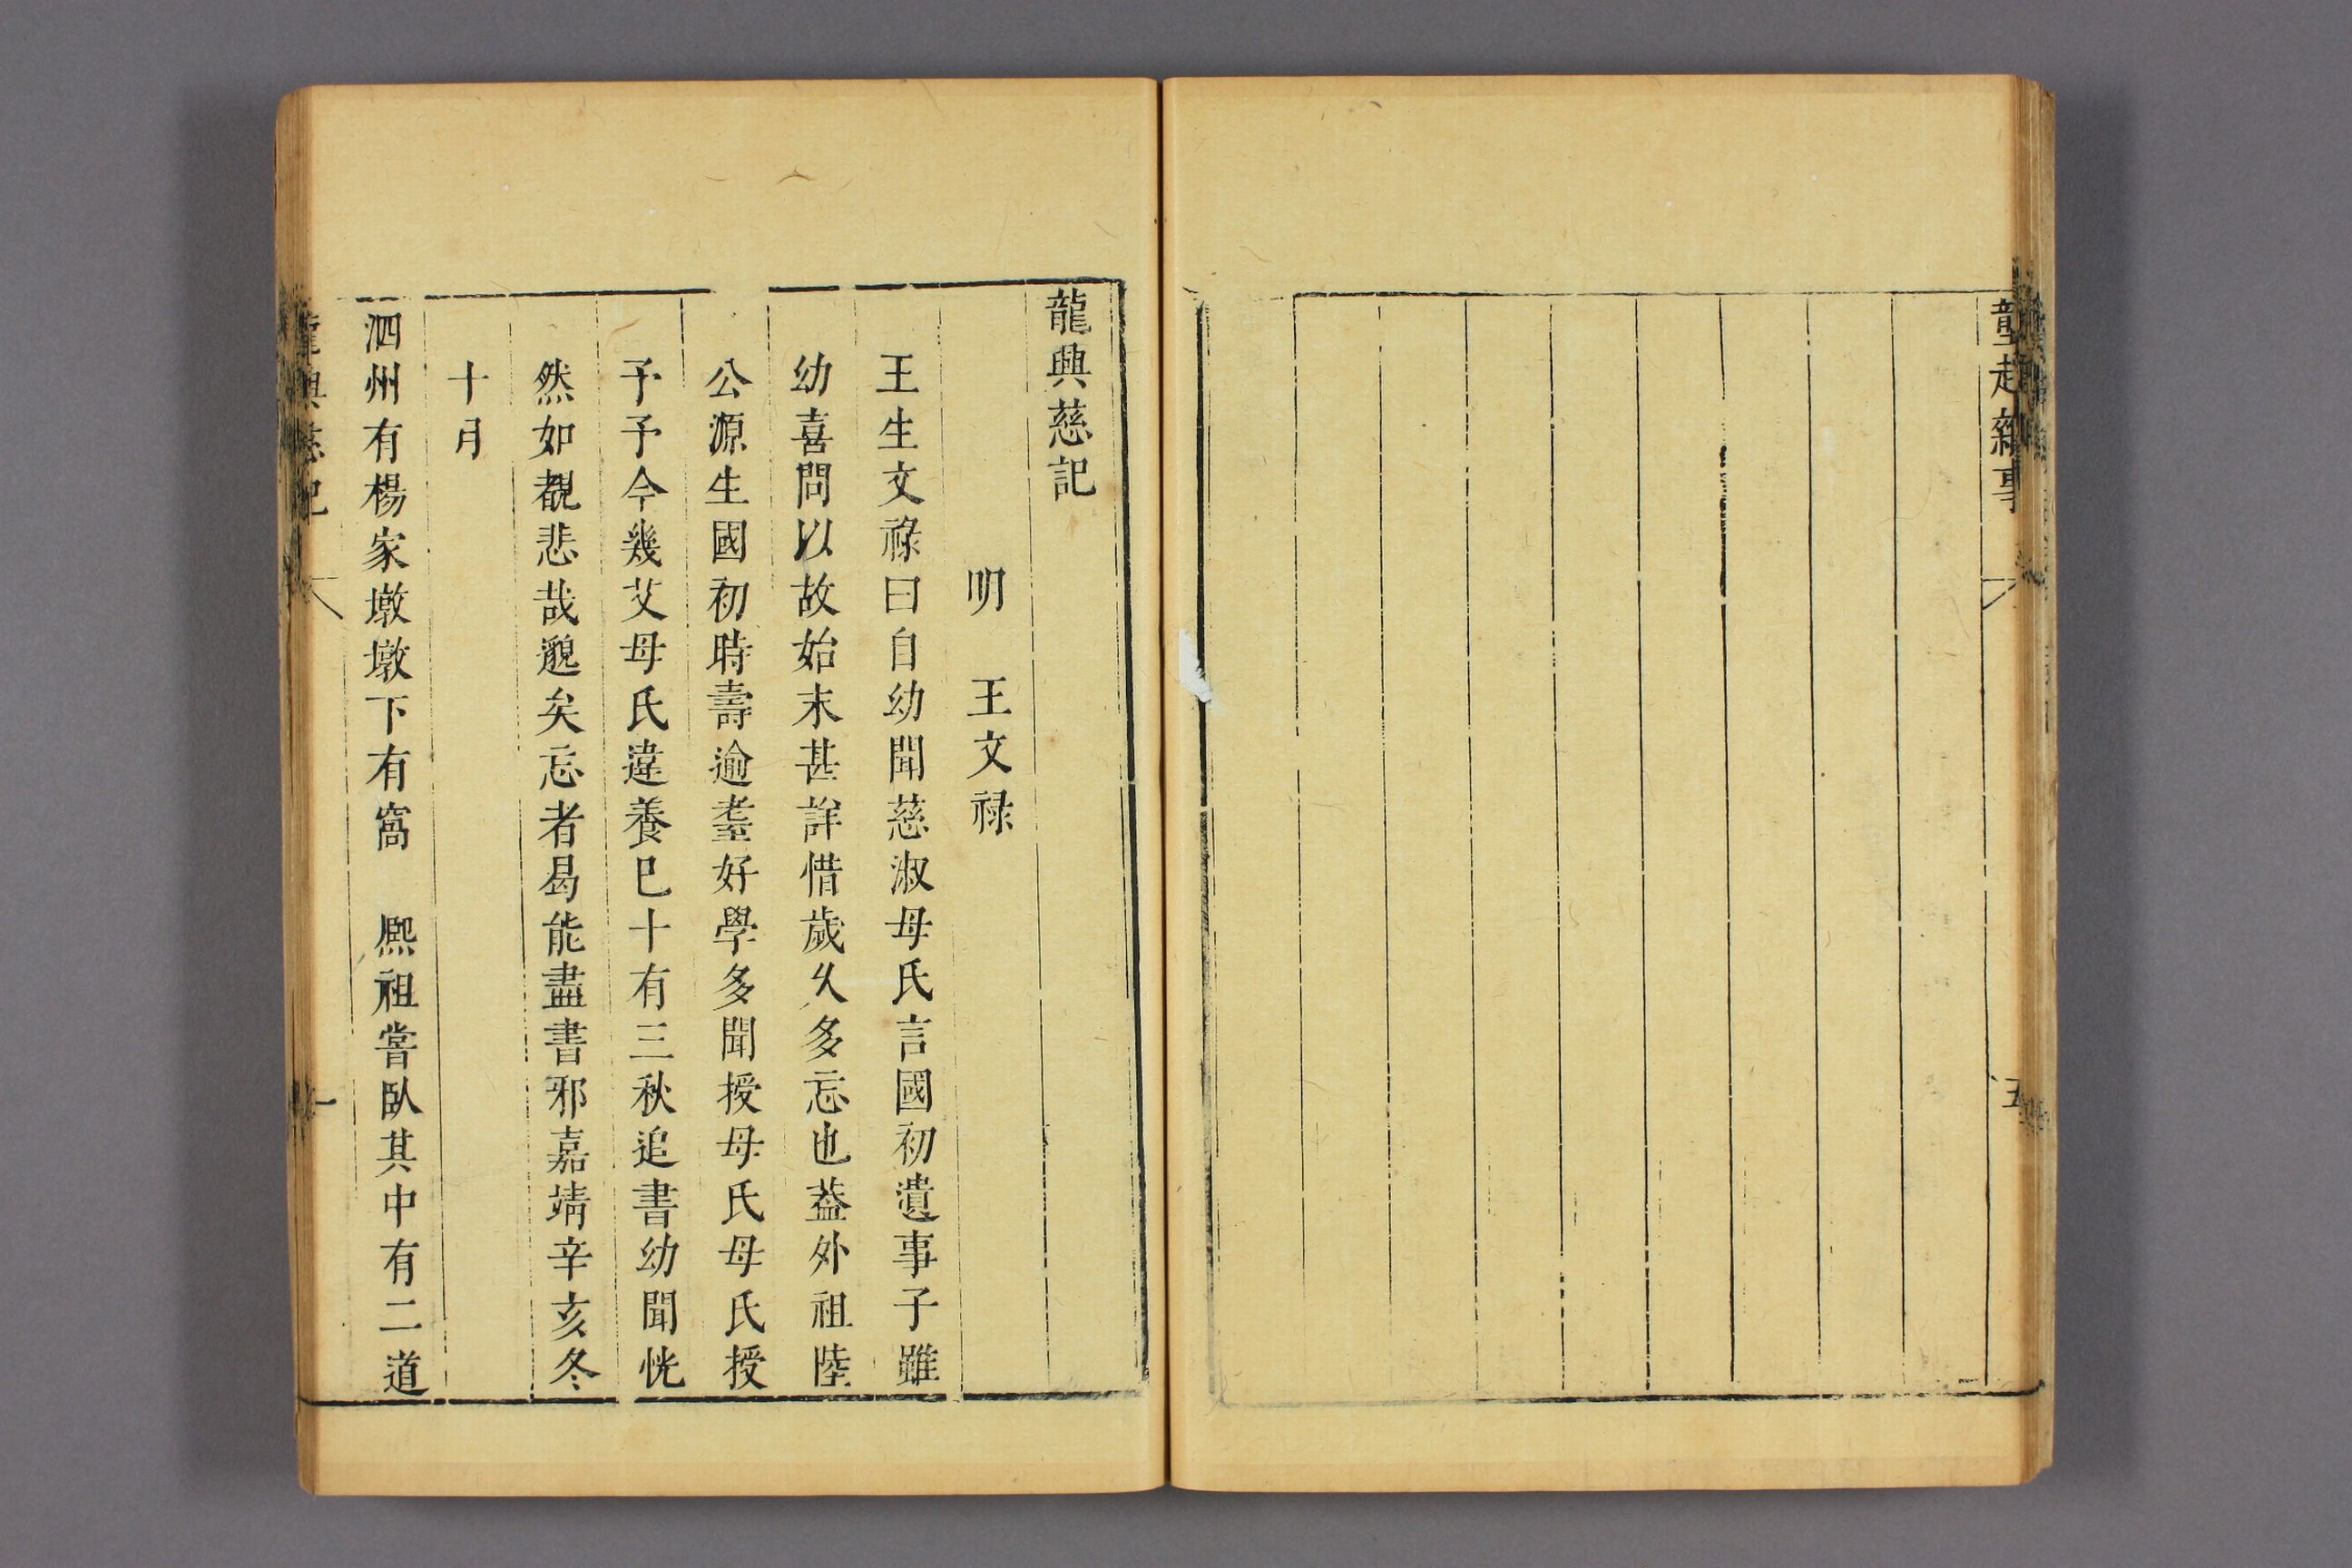 龍興慈記
明　王文禄
王生文祿曰自幼聞慈淑母氏言國初遺事子雖
幼喜問以故始末甚詳惜歲久多忘也葢外祖陸
公源生國初時壽逾耋好學多聞授母氏母氏授
予予今幾艾母氏違養巳十有三秋追書幼聞恍
然如覩悲哉邈矣忘者曷能盡書邪嘉靖辛亥冬
十月
泗州有楊家墩墩下有窩　熈祖嘗臥其中有二道
龍興慈記
一